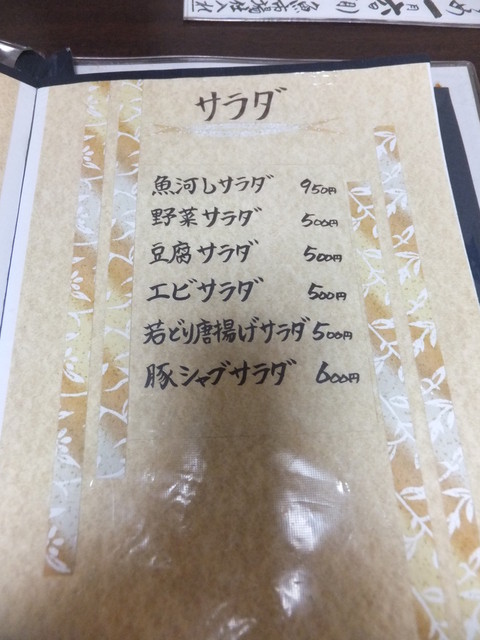 サラダ
魚河しサラダ 950円
野菜サラダ 500円
豆腐サラダ 500円
エビサラダ 500円
若どり唐揚げサラダ 500円
豚シャブサラダ 600円